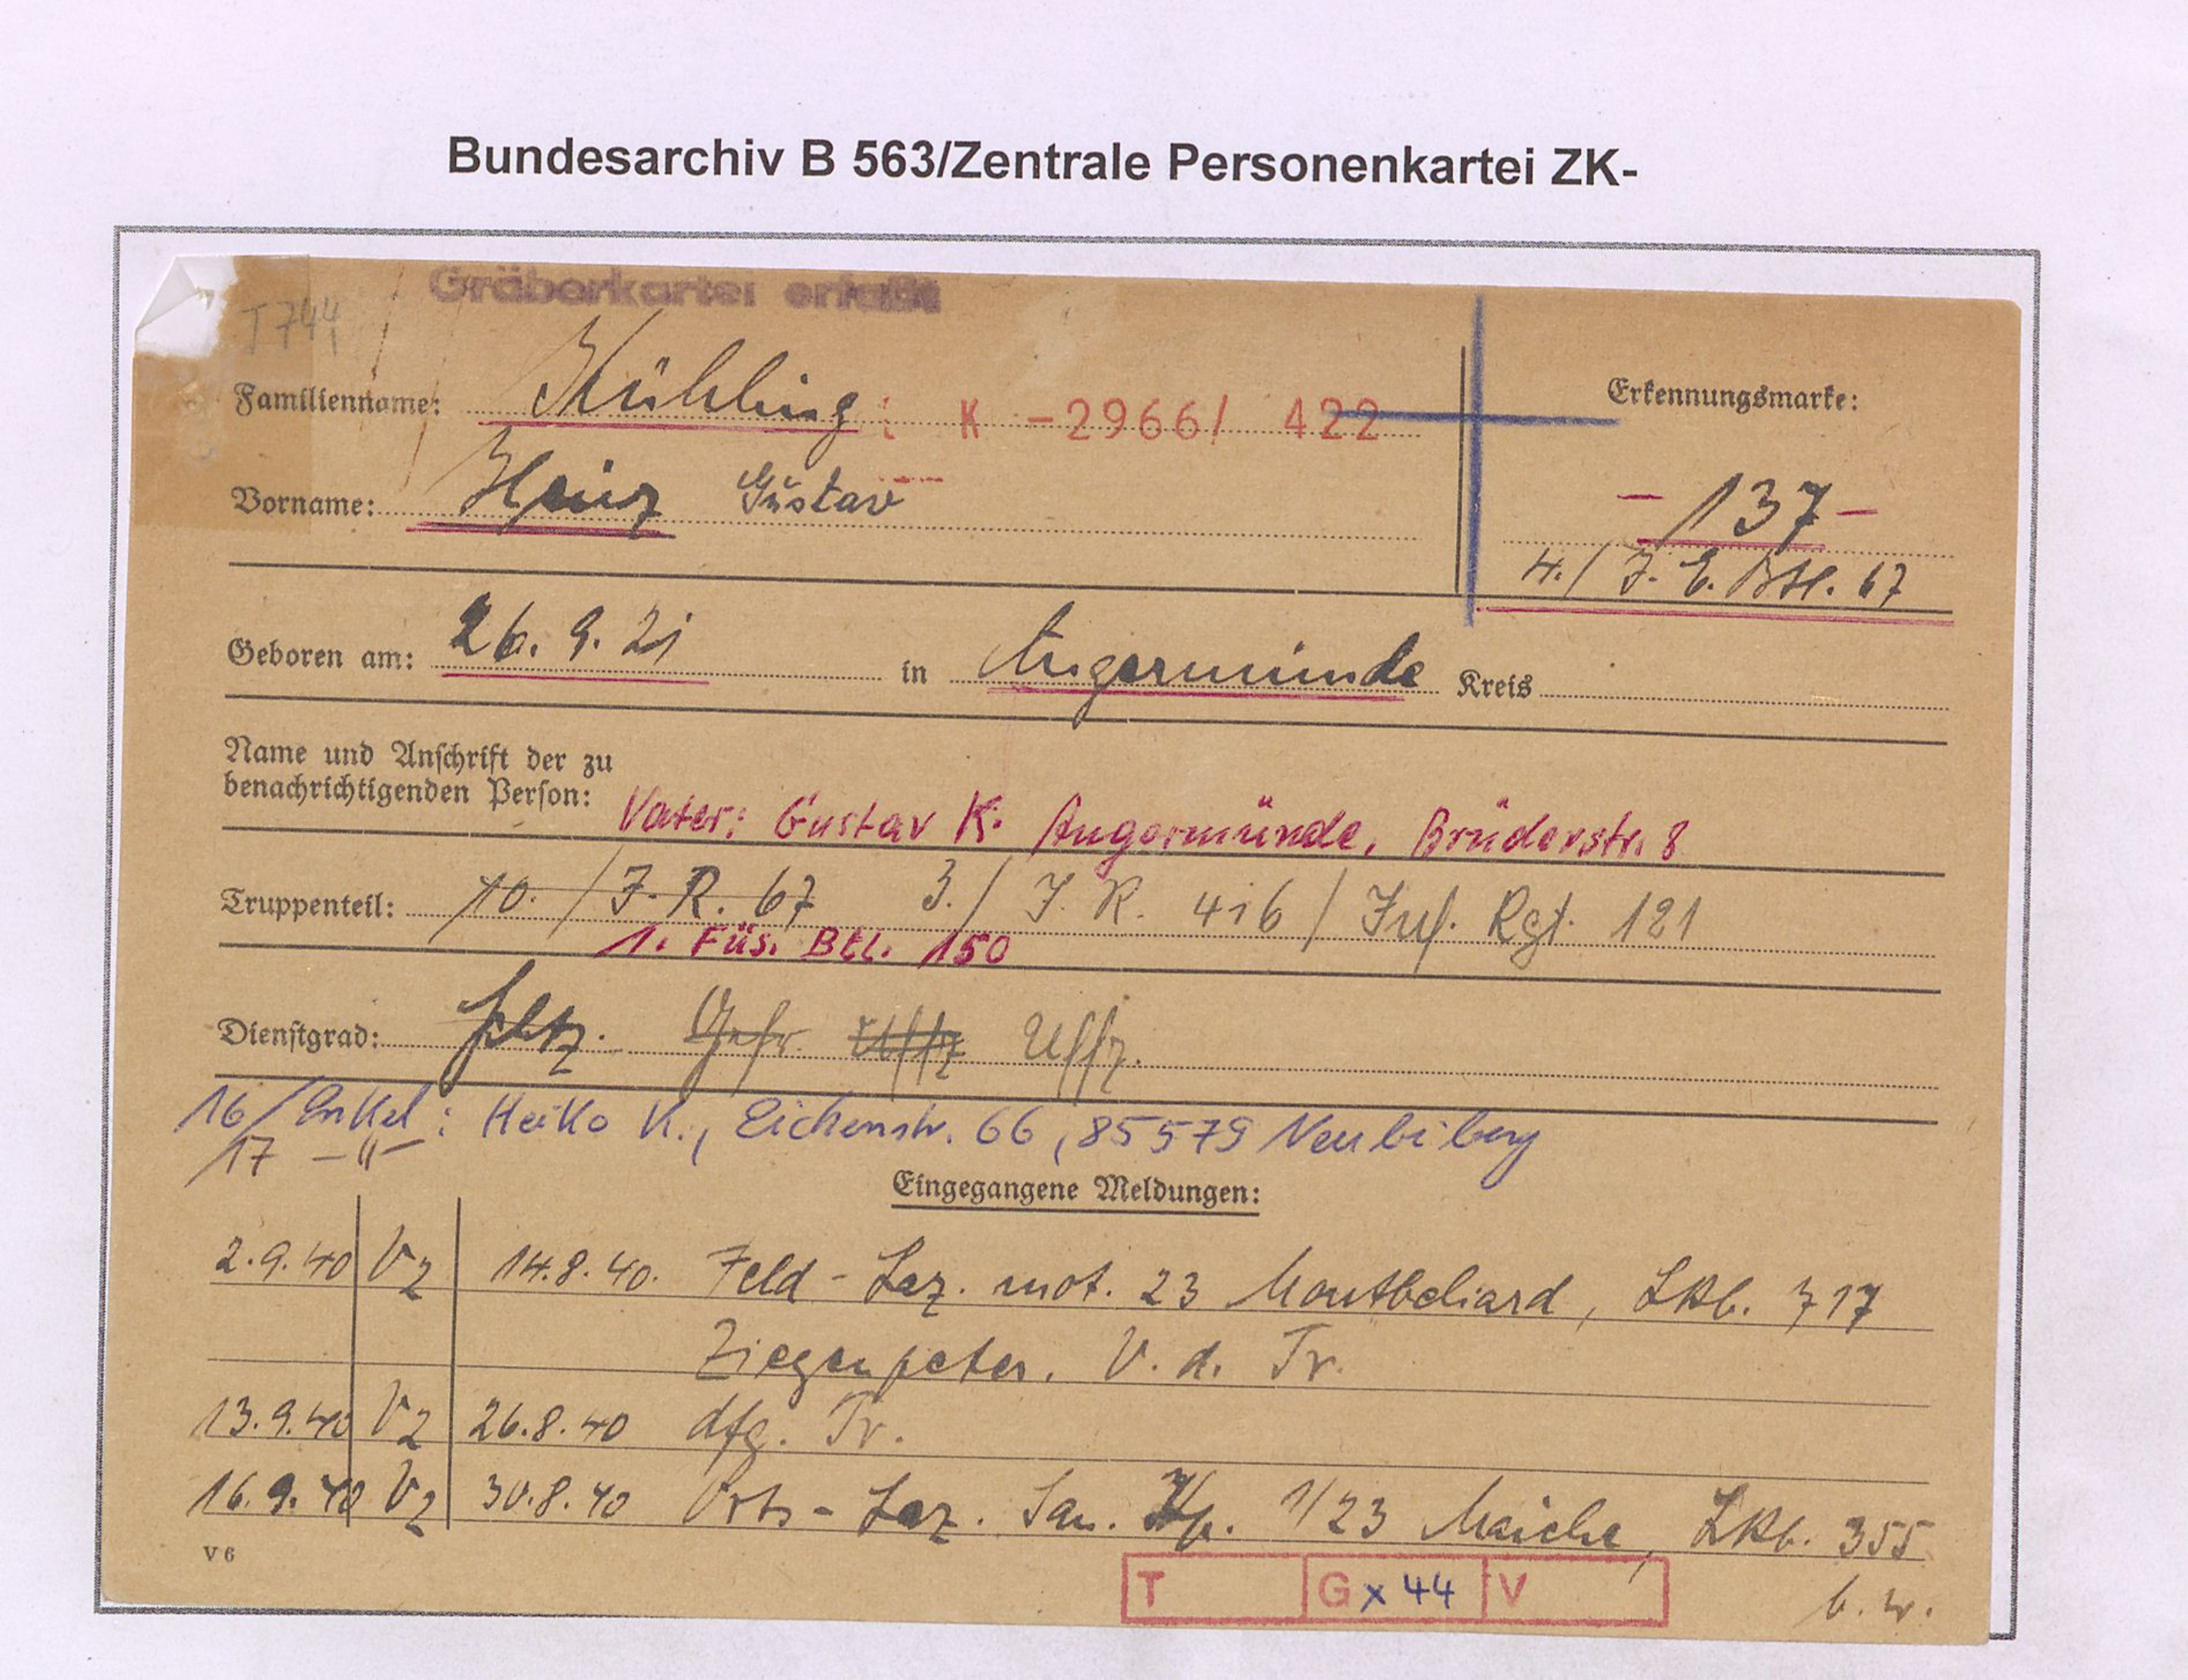 Bundesarchiv B 563/Zentrale Personenkartei ZK-
Gräberkartei erfaßt
T 744
Familienname: Kühling K -2966/ 422
Erkennungsmarke:
Vorname: Heinz Gustav
-137-
4./ J. E. Btl. 67
Geboren am: 26. 9. 21 in Angermünde Kreis
Name und Anschrift der zu
benachrichtigenden Person: Vater: Gustav K. Angermünde, Brüderstr. 8
Truppenteil: 10. / J. R. 67 3. / J. R. 416 / Inf. Rgt. 121
1. Füs. Btl. 150
Dienstgrad: Schtz. Gefr. Uffz Uffz.
16/Enkel: Heiko K., Eichenstr. 66, 85579 Neubiberg
17 -"-
Eingegangene Meldungen:
2.9.40 V2 14.8.40. Feld-Laz. mot. 23 Montbeliard, LKb. 717
Ziegenpeter. V. d. Tr.
13.9.40 V2 26.8.40 dfg. Tr.
16.9.40 V2 30.8.40 Orts-Laz. San. Kp. 1/23 Maiche, LKb. 355
V 6
T G x 44 V
b. w.